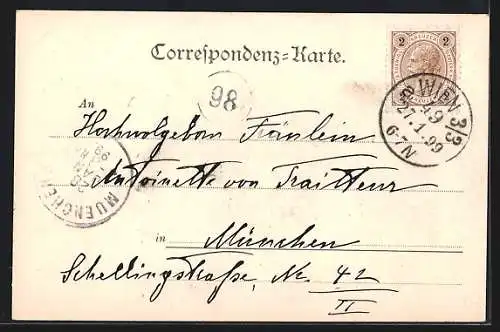 Correspondenz=Karte.
2 2
98
WIEN 3/3
27.1.99
6-7N
An
Hochwolgeborn Fräulein
Antoinette von Traitteur
MUENCHEN
in München
Schellingstraße, Nr. 42
II